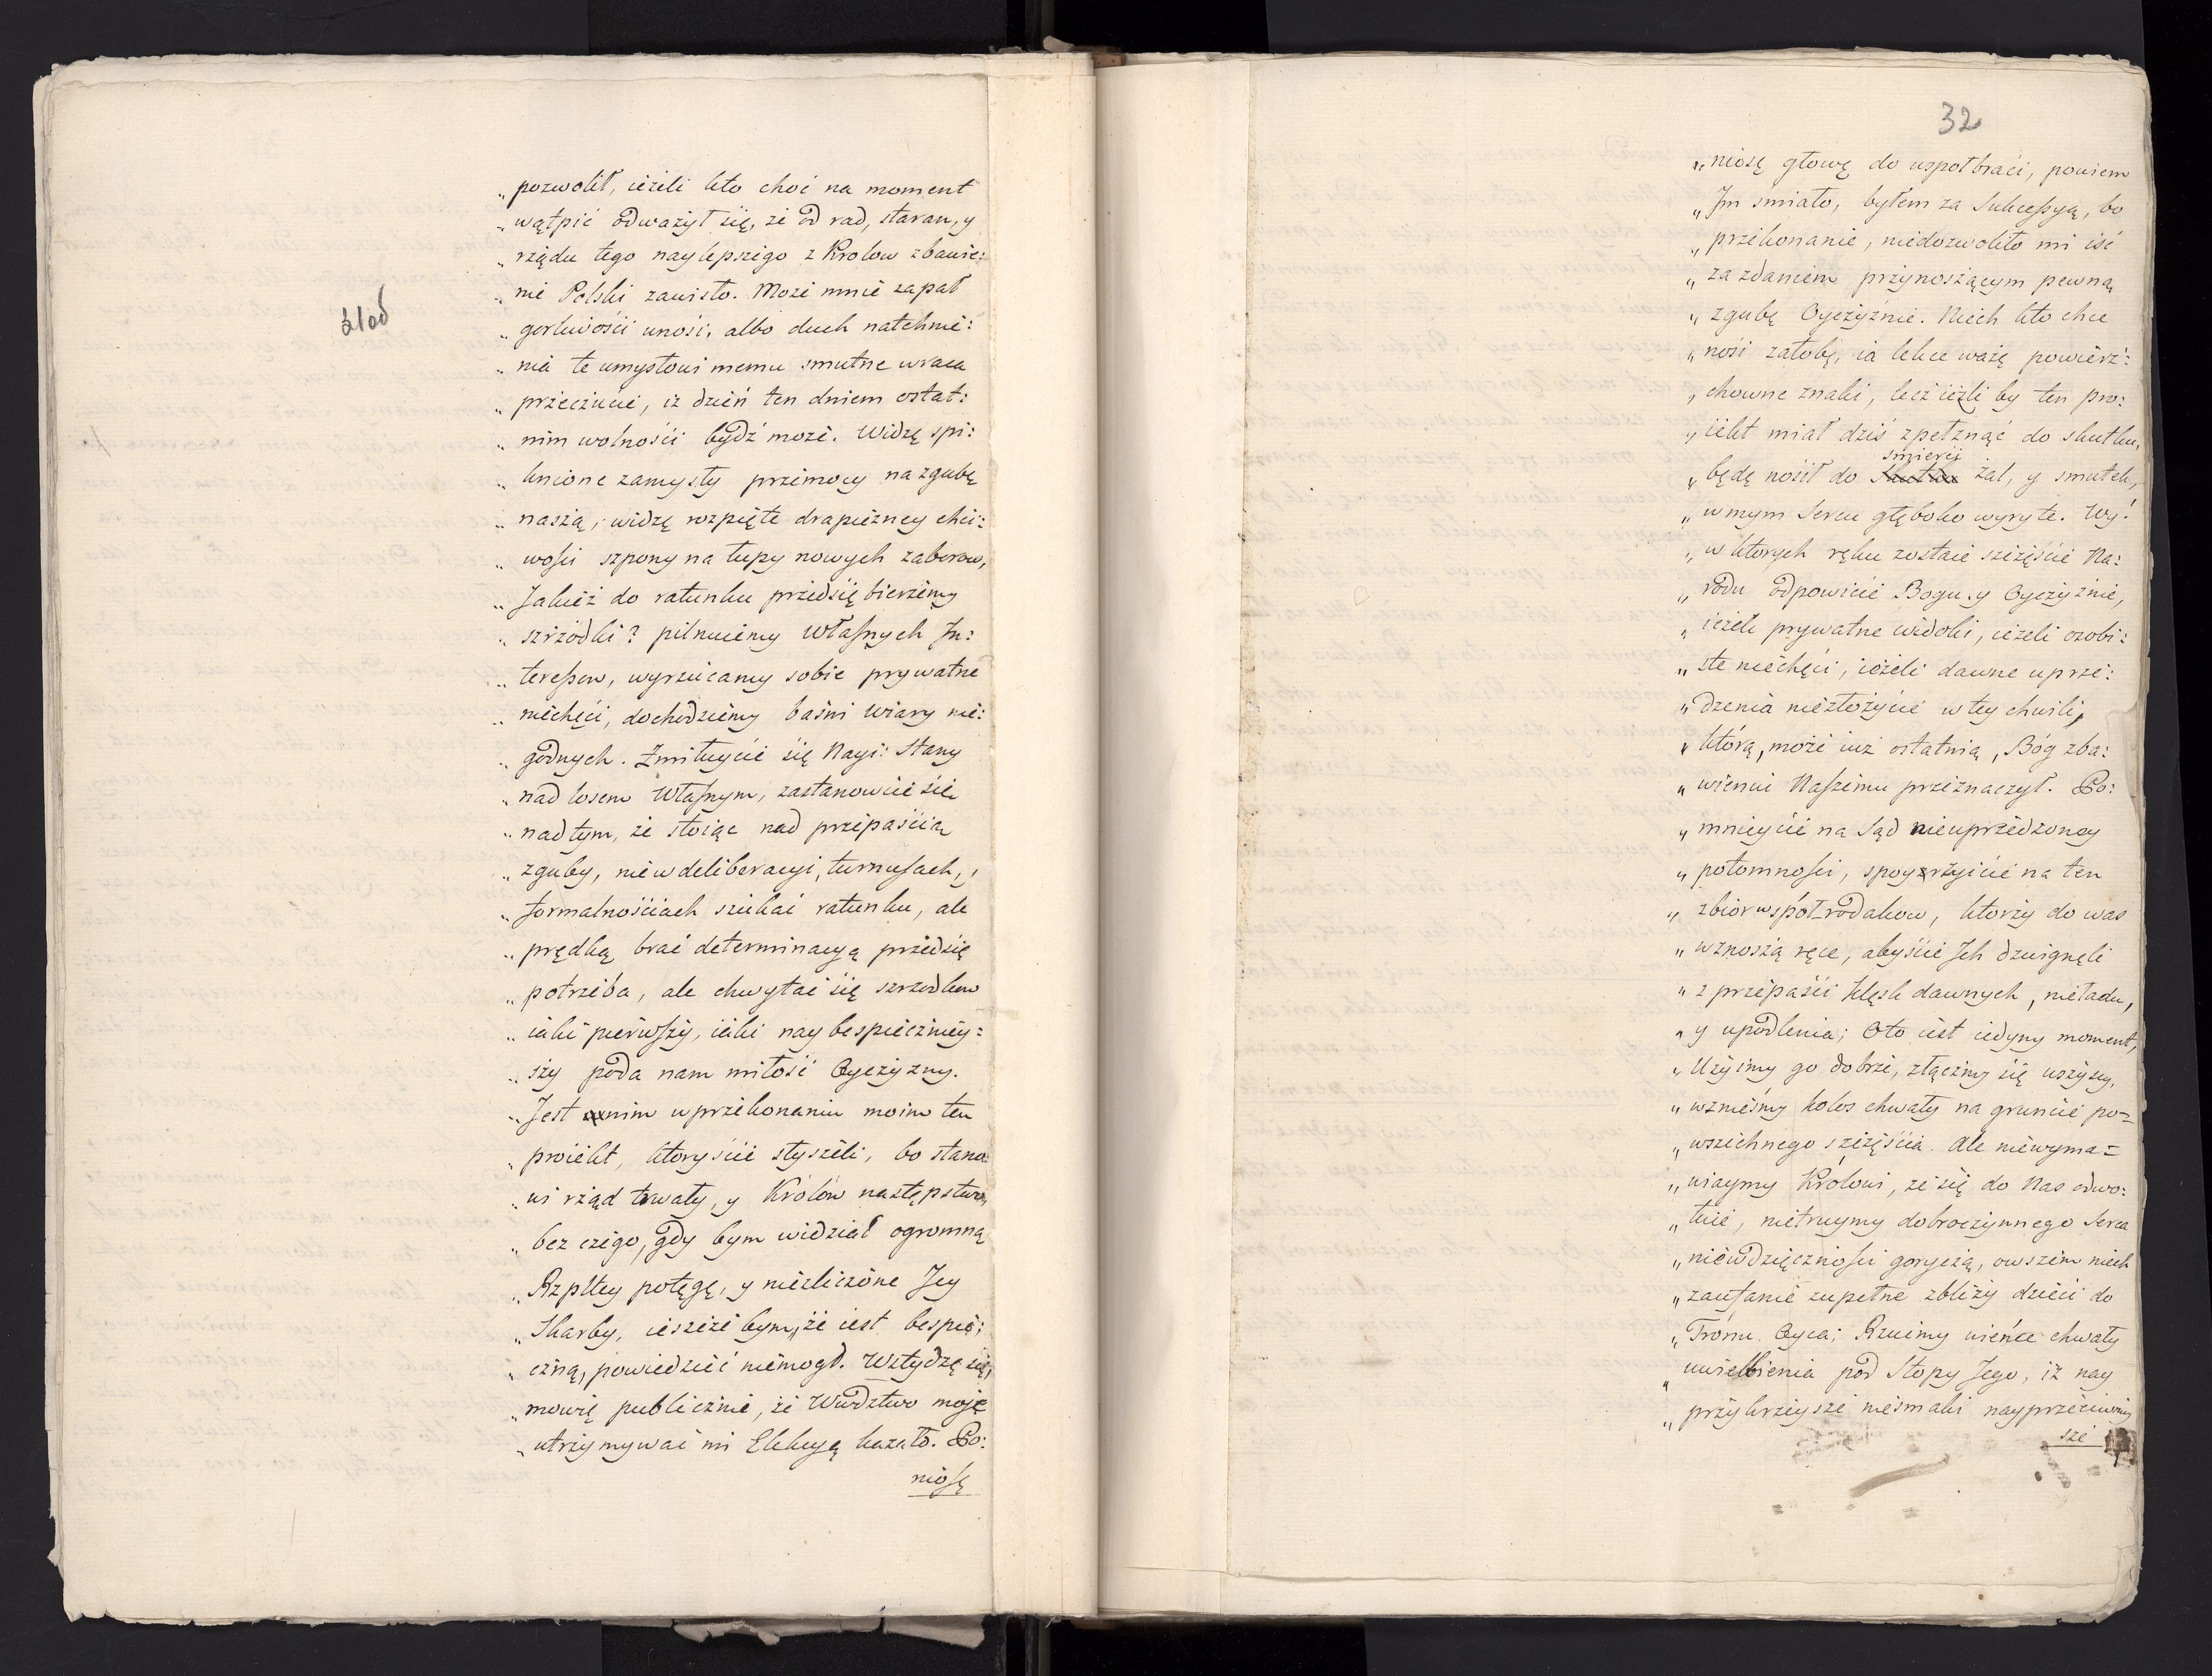 31 od
„pozwolił, ieżeli kto choć na moment
„wątpić odważył się, że od rad, staran, y
„rządu tego naylepszego z Krolow zbawie:
„nie Polski zawisło. Może mnie zapał
„gorliwości unosi, albo duch natchnie:
„nia te umysłowi memu smutne wraca
„przeczucie, iż dzień ten dniem ostat:
„nim wolności bydź może. Widzę spi:
„knione zamysły przemocy na zgubę
„naszą, widzę rozpięte drapieżney chci:
„wości szpony na łupy nowych zaborow,
„Jakież do ratunku przedsię bierzemy
„szrzodki? pilnuiemy Własnych In:
„teressow, wyrzucamy sobie prywatne
„niechęci, dochodziemy baśni wiary nie:
„godnych. Zmiłuycie się Nayi: Stany
„nad losem Własnym, zastanowcie się
„nad tym, że stoiąc nad przepaścią
„zguby, nie w deliberacyi, turnusach,
„formalnościach szukać ratunku, ale
„prędką brać determinacyą przedsię
„potrzeba, ale chwytać się szrzodkow
„iaki pierwszy, iaki naybespieczniey=
„szy poda nam miłość Oyczyzny.
„Jest nim w przekonaniu moim ten
„proiekt, ktoryście słyszeli, bo stano:
„wi rząd trwały, y Królów następstwo,
„bez czego, gdy bym widział ogromną
„Rzpltey potęgę, y niezliczone Jey
„Skarby, ieszcze bym, że iest bespie:
„czną, powiedzieć niemogł. Wstydzę się,
„mowię publicznie, że Wudztwo moje
„utrzymywać mi Elekcyą kazało. Po:
niosę
32
„niosę głowę do wspołbraci, powiem
„Im smiało, byłem za Sukcessyą, bo
„przekonanie, niedozwoliło mi iść
„za zdaniem przynoszącym pewną
„zgubę Oyczyźnie. Niech kto chce
„nosi załobę, ia lekce ważę powierz:
„chowne znaki, lecz ieżli by ten pro:
„iekt miał dziś zpełznąć do skutku,
smierci
„będę nosił do Skutku żal, y smutek,
„w mym Sercu głęboko wyryte. Wy!
„w ktorych ręku zostaie szczęście Na:
„rodu odpowiecie Bogu y Oyczyźnie,
„ieżeli prywatne widoki, ieżeli osobi:
„ste niechęci, ieżeli dawne uprze:
„dzenia niezłożycie w tey chwili,
„którą, może iuż ostatnią, Bóg zba:
„wieniu Naszemu przeznaczył. Po:
„mnieycie na Sąd nieuprzedzoney
„potomności, spoyrzyicie na ten
„zbior współ rodakow, ktorzy do was
„wznoszą ręce, abyście Ich dzwignęli
„z przepaści klęsk dawnych, nieładu,
„y upodlenia; Oto iest iedyny moment,
„Użyimy go dobrze, złączmy się wszyscy,
„wznieśmy kolos chwały na gruncie po=
„wszechnego szczęścia. Ale niewyma=
„wiaymy Królowi, że się do Nas odwo:
„łuie, nietruymy dobroczynnego Serca
„niewdzięczności goryczą, owszem niech
„zaufanie zupełne zbliży dzieci do
„Tronu Oyca; Rzućmy wieńce chwały
„uwielbienia pod Stopy Jego, iż nay
„przykrzeysze niesmaki nayprzeciwniey
sze